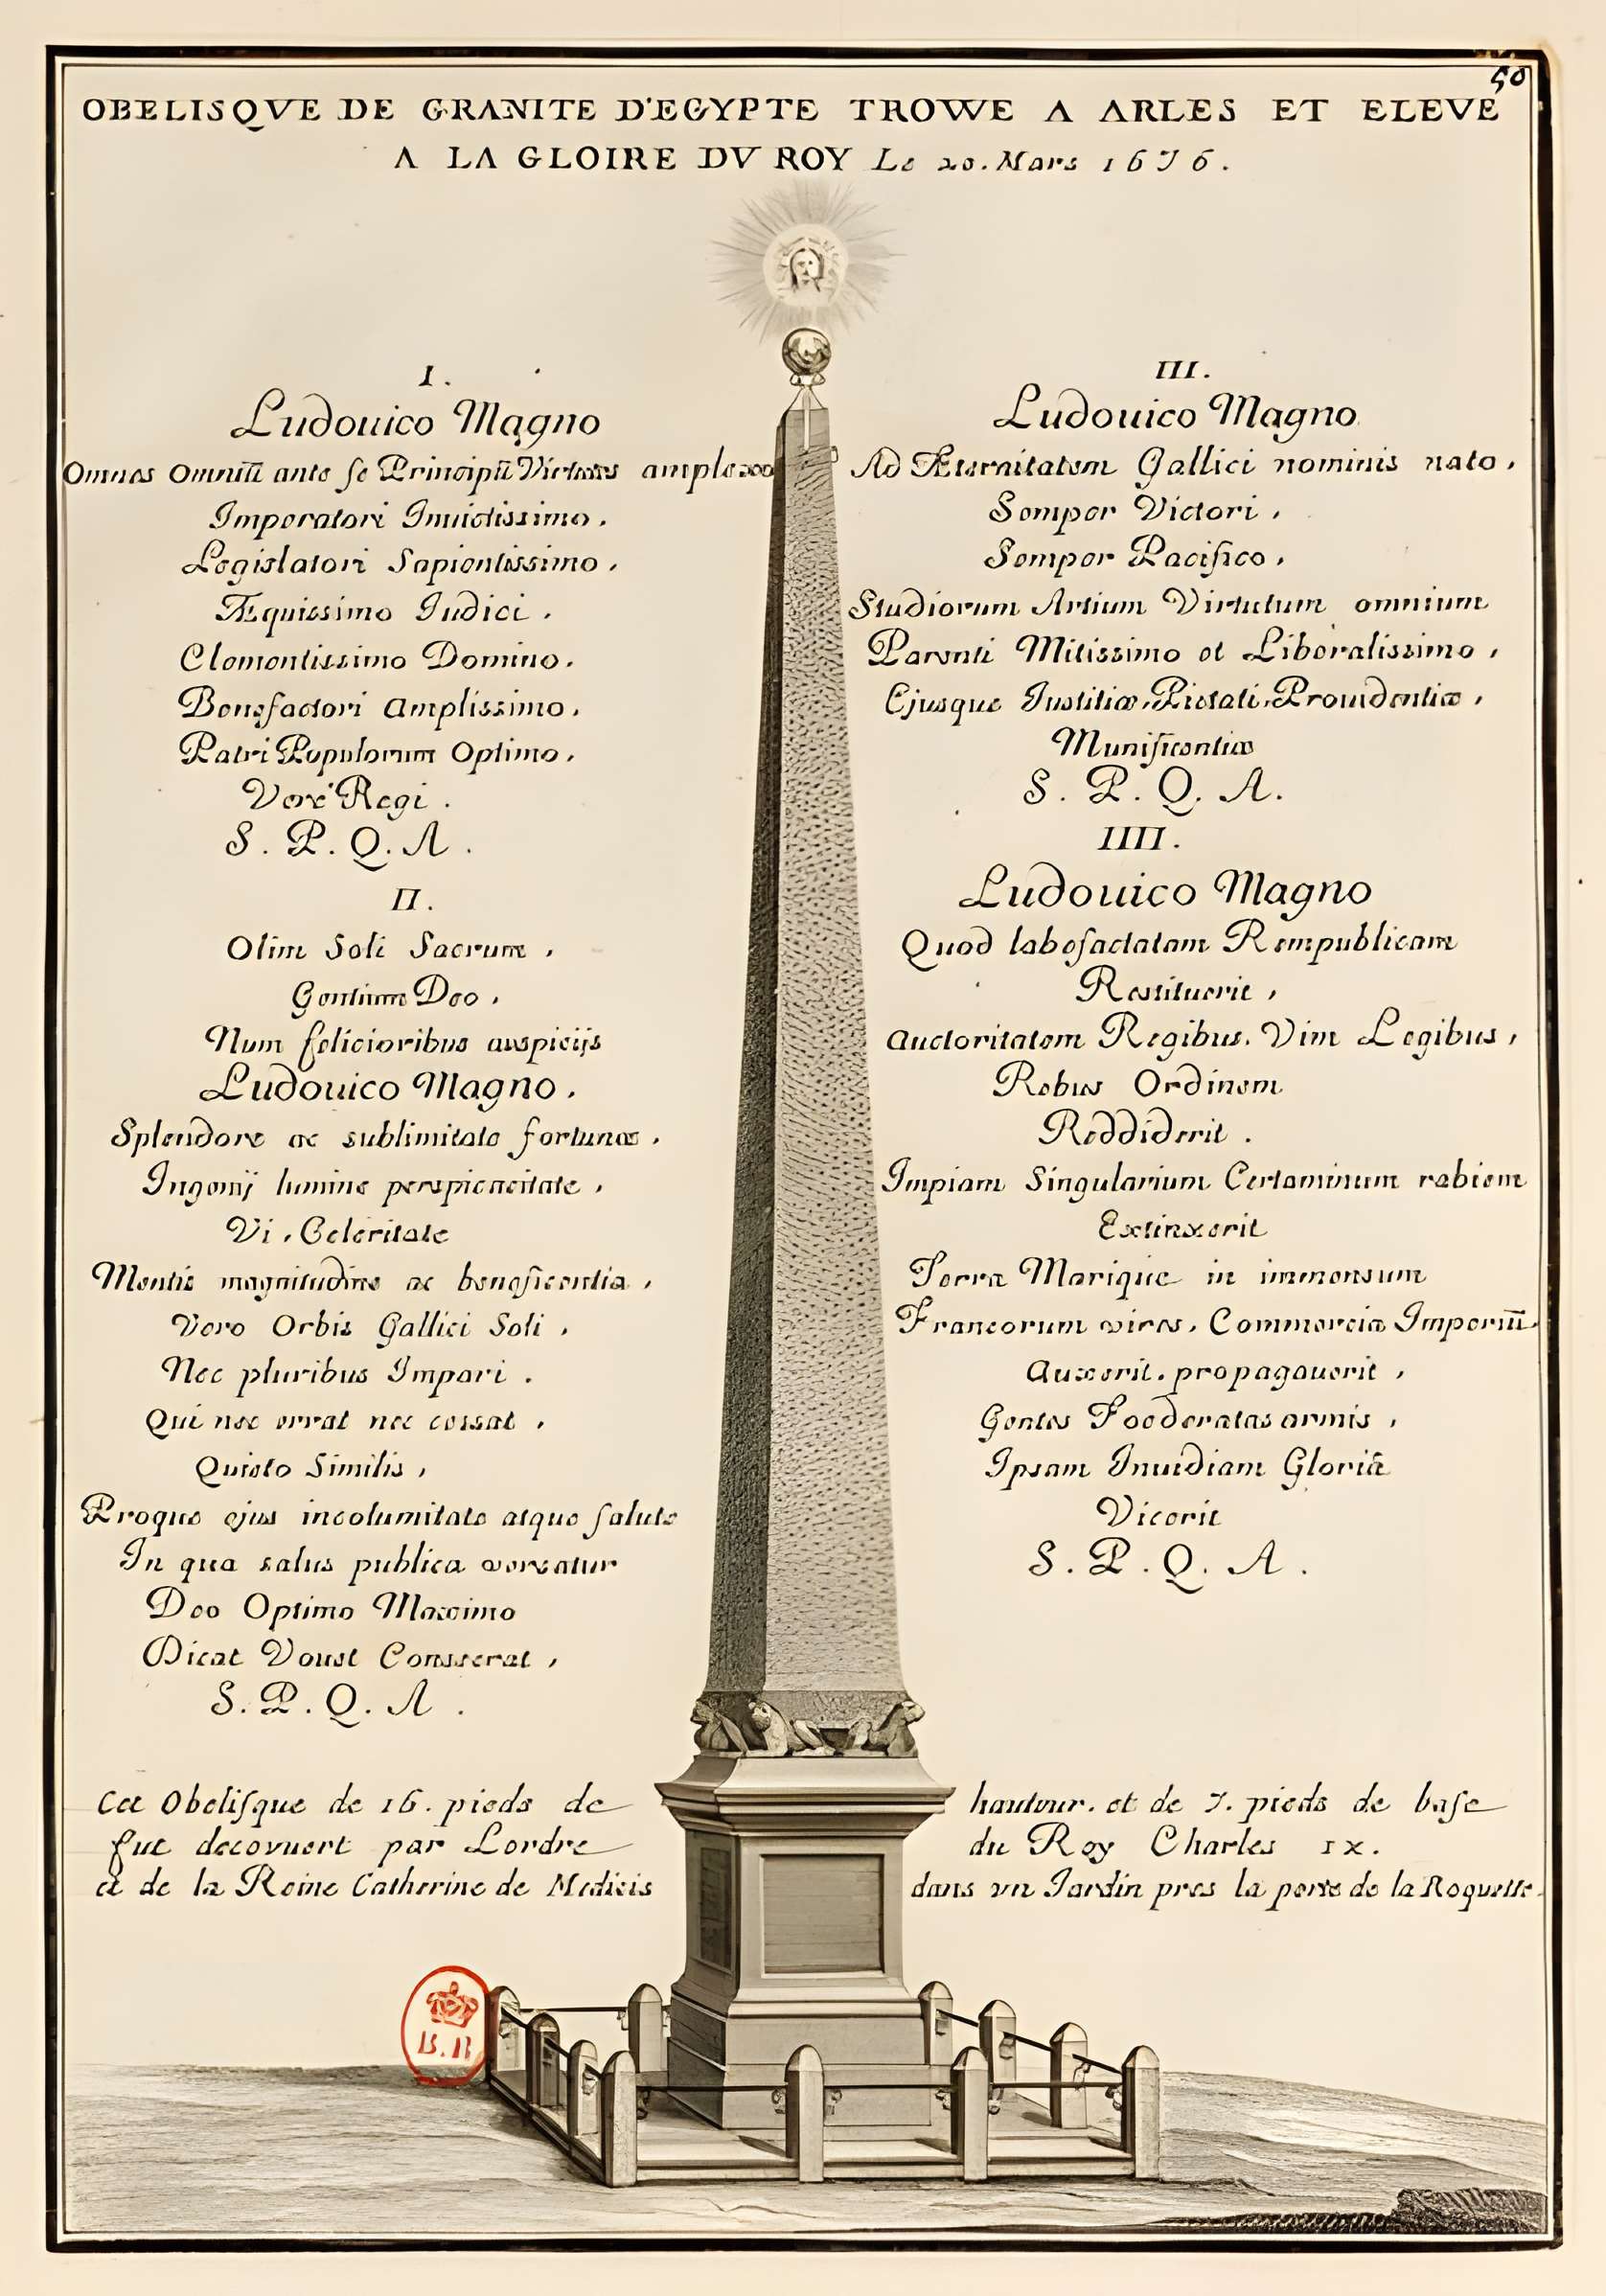 50
OBELISQVE DE GRANITE D'EGYPTE TROWE A ARLES ET ELEVE
A LA GLOIRE DV ROY Le 20. Mars 1676.
I.
Ludouico Magno
Omnes Omniũ ante se Principũ Virtutes amplexo
Imperatori Inuictissimo,
Legislatori Sapientissimo,
Æquissimo Iudici,
Clementissimo Domino,
Benefactori Amplissimo,
Patri Populorum Optimo,
Veré Regi.
S. P. Q. A.
II.
Olim Soli Sacrum,
Gentium Deo,
Num felicioribus auspicijs
Ludouico Magno,
Splendore ac sublimitate fortunæ,
Ingenij lumine perspicacitate,
Vi, Celeritate
Mentis magnitudine ac beneficentia,
Vero Orbis Gallici Soli,
Nec pluribus Impari.
Qui nec errat nec cessat,
Quieto Similis,
Proque ejus incolumitate atque salute
In qua salus publica versatur
Deo Optimo Maximo
Dicat Vouet Consecrat,
S. P. Q. A.
III.
Ludouico Magno
Ad Æternitatem Gallici nominis nato,
Semper Victori,
Semper Pacifico,
Studiorum Artium Virtutum omnium
Parenti Mitissimo et Liberalissimo,
Ejusque Iustitiæ, Pietati, Prouidentiæ,
Munificentiæ
S. P. Q. A.
IIII.
Ludouico Magno
Quod labefactatam Rempublicam
Restituerit,
Auctoritatem Regibus, Vim Legibus,
Rebus Ordinem
Reddiderit.
Impiam Singularium Certaminum rabiem
Extinxerit
Terra Marique in immensum
Francorum vires, Commercia Imperiũ
Auxerit, propagauerit,
Gentes Foederatas armis,
Ipsam Inuidiam Gloriã
Vicerit
S. P. Q. A.
Cet Obelisque de 16. pieds de hauteur. et de 7. pieds de base
fut decovuert par Lordre du Roy Charles IX.
et de la Reine Catherine de Medicis dans vn Iardin pres la porte de la Roquette.
B.R